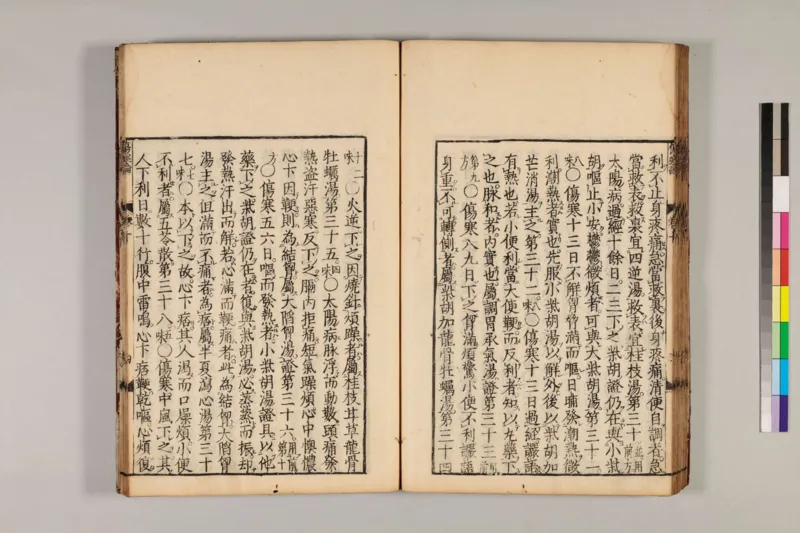 利不止身疼痛急當救裏後身疼痛清便自調者急
當救表救裏宜四逆湯救表宜桂枝湯第三十並用前方
太陽病過經十餘日二三下之柴胡證仍在與小柴
胡嘔止小安鬱鬱微煩者可與大柴胡湯第三十一
味八○傷寒十三日不解胷脅滿而嘔日晡發潮熱微
利潮熱者實也先服小柴胡湯以解外後以柴胡加
芒消湯主之第三十二味八○傷寒十三日過經讝語
有熱也若小便利當大便鞕而反利者知以丸藥下
之也脉和者内實也屬調胃承氣湯證第三十三
○傷寒八九日下之胷滿煩驚小便不利讝語
身重不可轉側者屬柴胡加龍骨牡蠣湯第三十四
十二味○火逆下之因燒針煩躁者屬桂枝甘草龍骨
牡蠣湯第三十五四味○太陽病脉浮而動數頭痛發
熱盗汗惡寒反下之膈内拒痛短氣躁煩心中懊憹
心下因鞕則為結胷屬大陷胷湯證第三十六
○傷寒五六日嘔而發熱者小柴胡湯證具以他
藥下之柴胡證仍在者復與柴胡湯必蒸蒸而振却
發熱汗出而解若心滿而鞕痛者此為結胷大陷胷
湯主之但滿而不痛者為痞屬半夏瀉心湯第三十
七七味○本以下之故心下痞其人渴而口燥煩小便
不利者屬五苓散第三十八○傷寒中風下之其
人下利日數十行腹中雷鳴心下痞鞕乾嘔心煩復